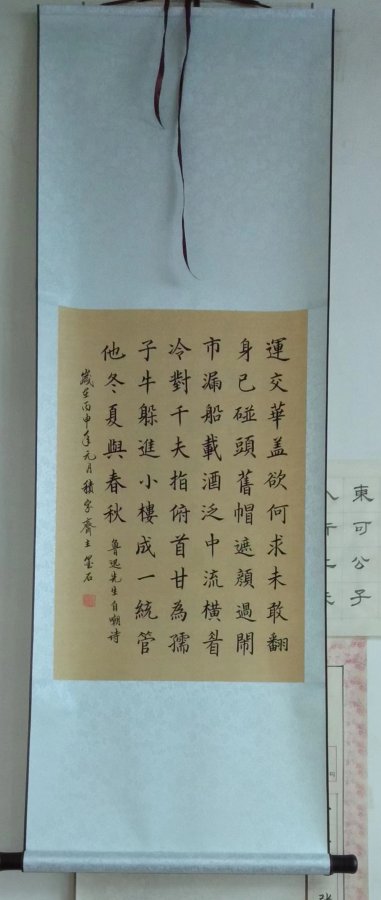 運交華盖欲何求未敢翻
身已碰頭舊帽遮顏過鬧
市漏船載酒泛中流橫眉
冷對千夫指俯首甘為孺
子牛躲進小樓成一統管
他冬夏與春秋 魯迅先生自嘲诗
歲至丙申年元月積字齋主石
東可公子